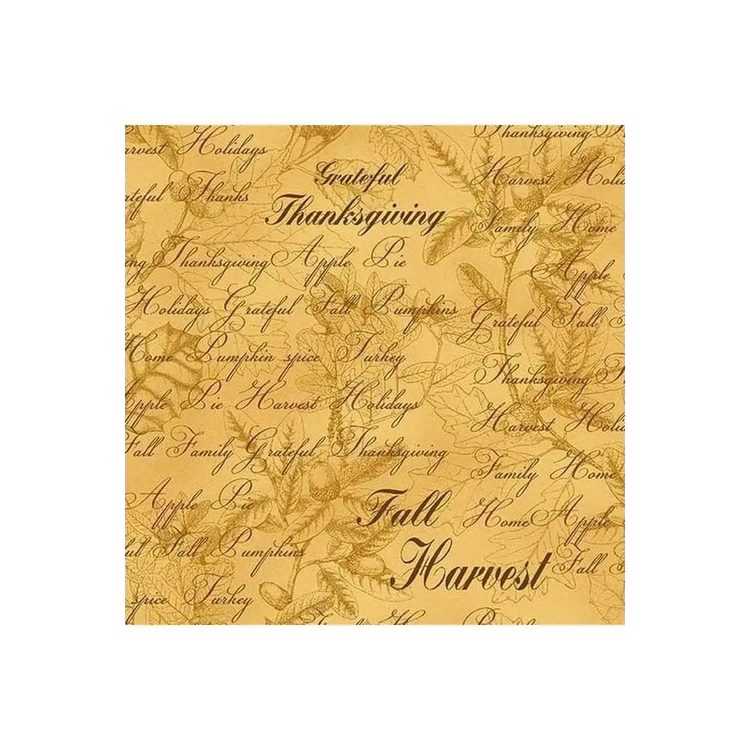 Thanksgiving
arvest Holidays
Grateful
Harvest Holi
teful Thanks
Thanksgiving
Family Home
ng Thanksgiving Apple Pie
Apple
Holidays Grateful Fall Pumpkins
Grateful Fall
Home Pumpkin spice Turkey
Thanksgiving
pple Pie Harvest Holidays
Harvest Holi
Fall Family Grateful Thanksgiving
Family Home
Apple Pie
Fall
Home Apple
ul Fall Pumpkins
Harvest
Fall
spice Turkey